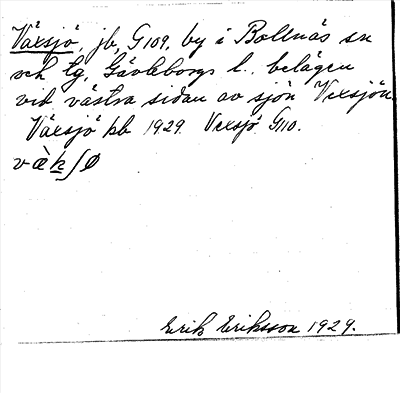 Växsjö, jb, G109, by i Bollnäs sn
och tg, Gävleborgs l., belägen
vid västra sidan av sjön Vexsjön.
Växsjö kb 1929. Vexsjö G110.
Erik Eriksson 1929.